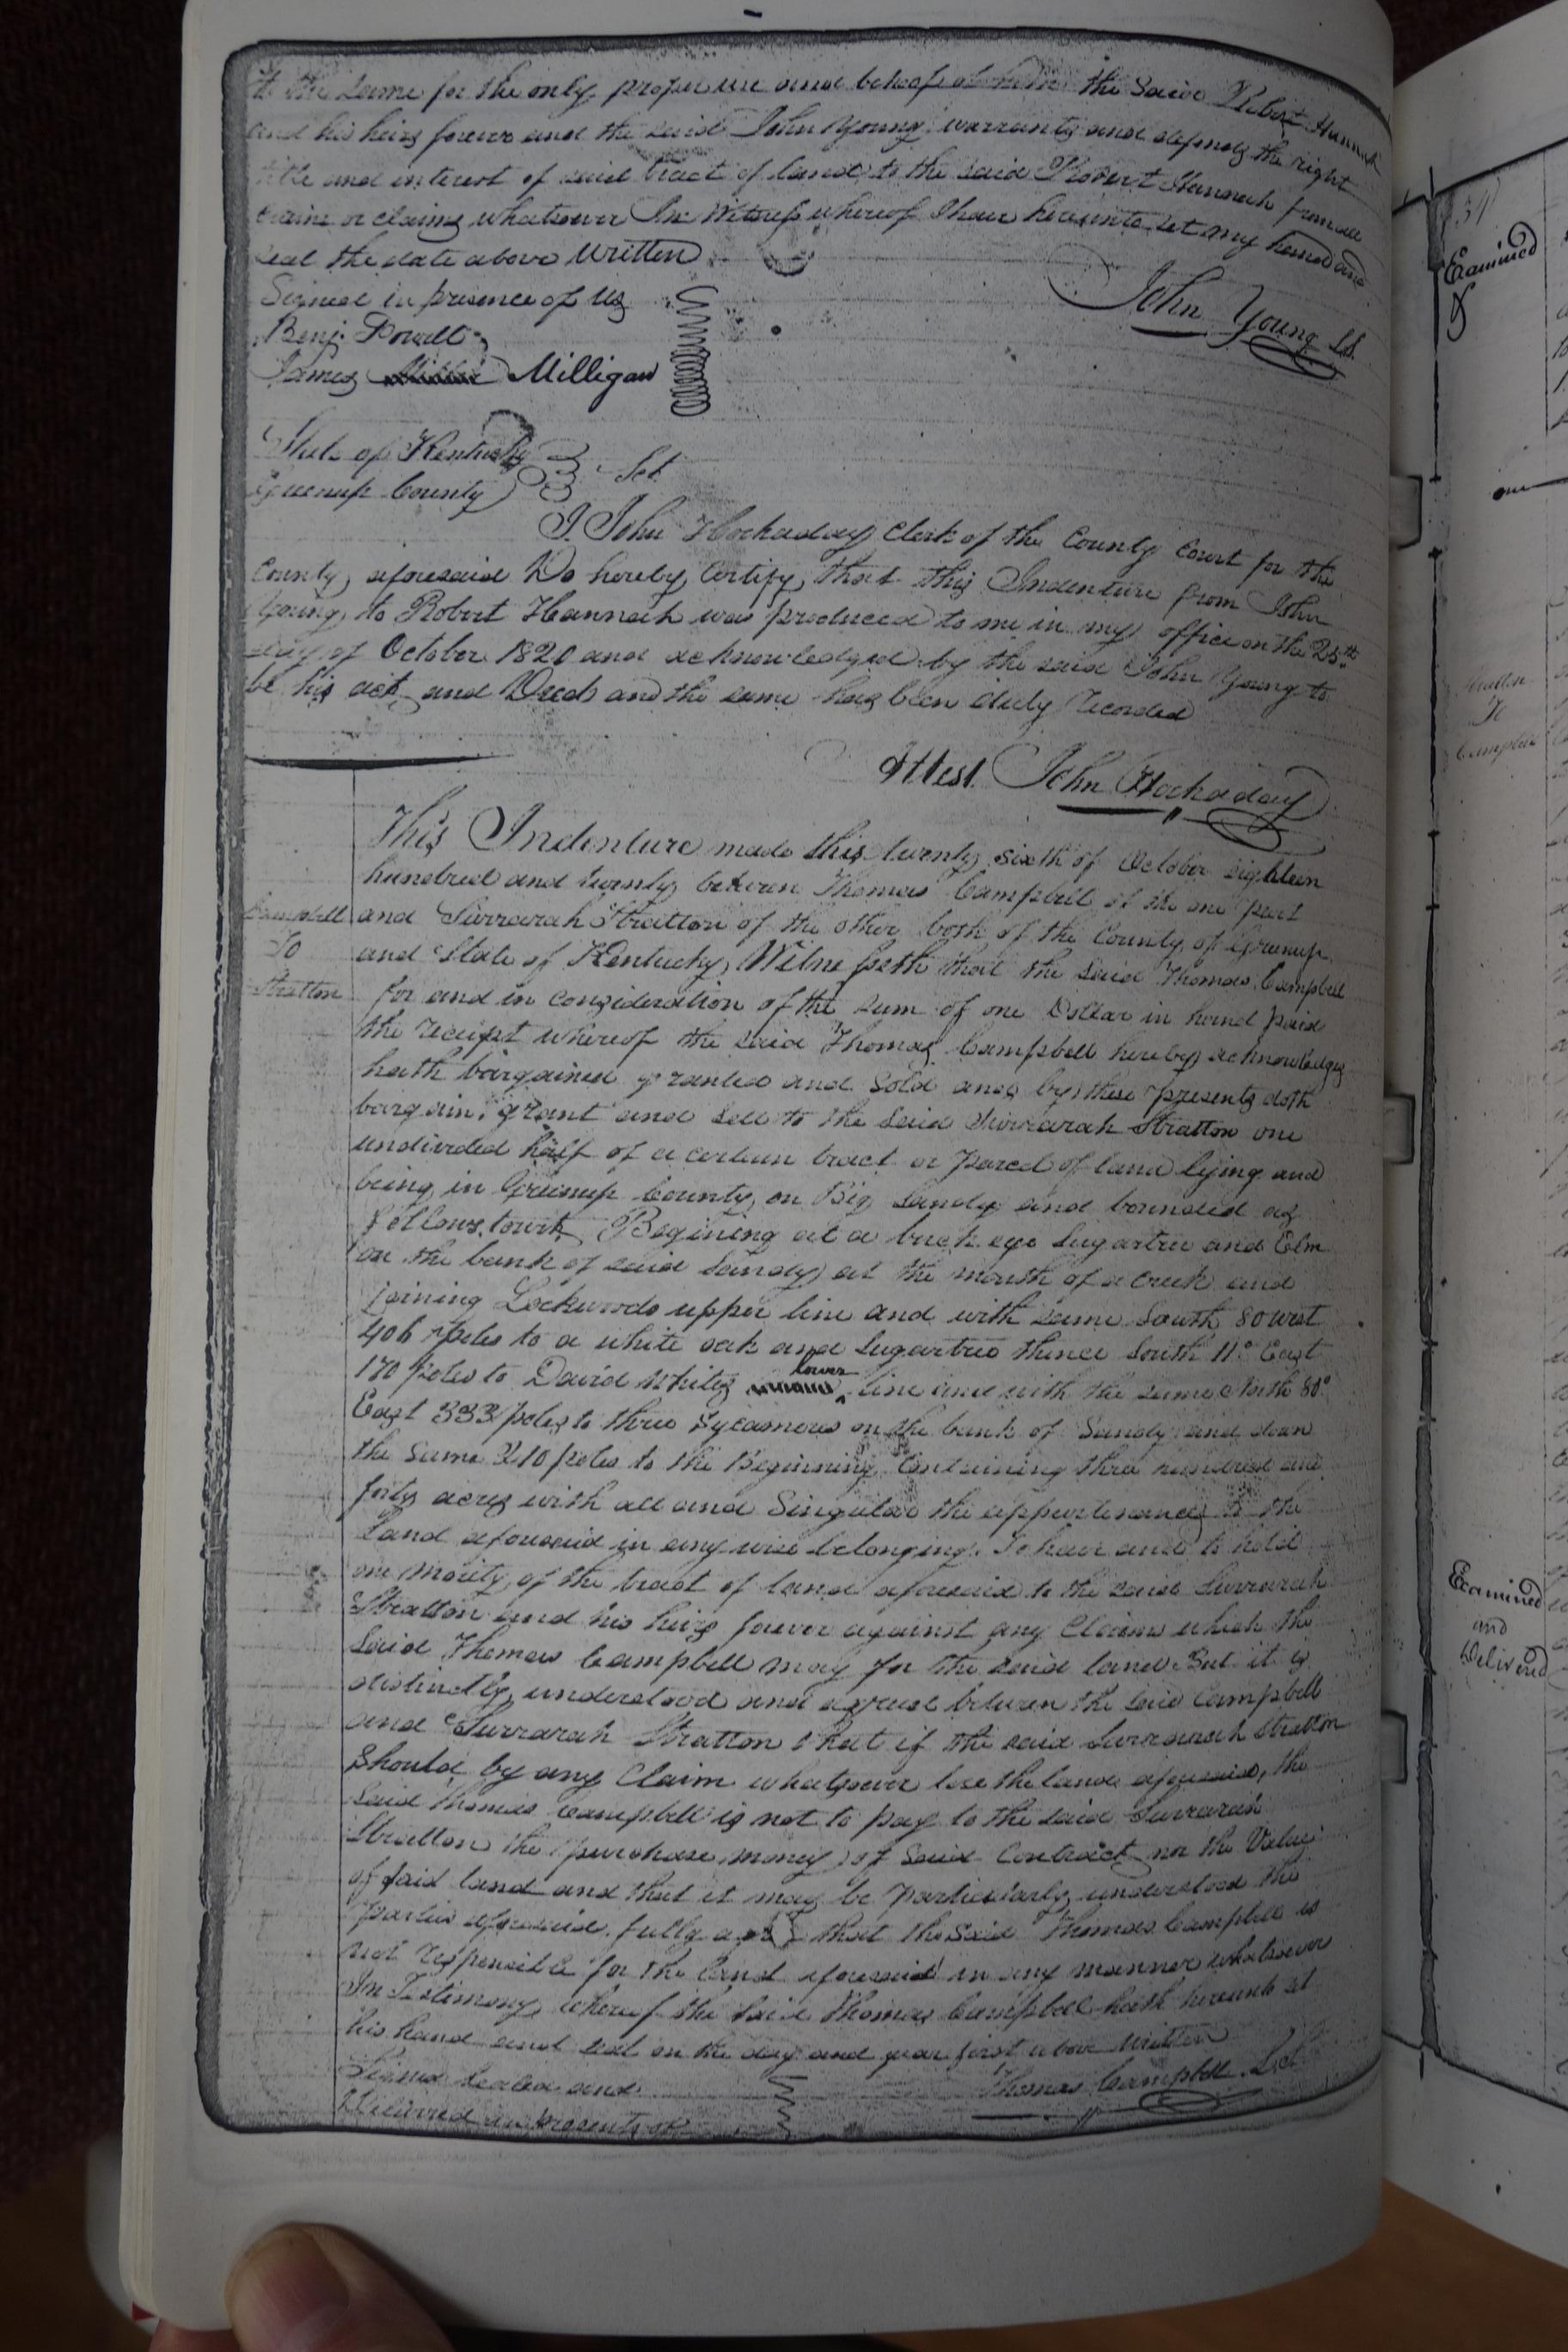 to the same for the only proper use and behoof of him the Said Robert Hannah
and his heirs forever and the said John Young warrants and defends the right
title and interest of said tract of land to the said Robert Hannah from all
claim or claims whatsoever In Witness whereof I have hereunto set my hand and
seal the date above Written
Signed in presence of us
John Young Ls.
Benj. Powell
James Milligan
State of Kentucky
Greenup County Sct.
I. John Hockaday Clerk of the County Court for the
County aforesaid Do hereby Certify that this Indenture from John
Young to Robert Hannah was produced to me in my office on the 25th
day of October 1820 and acknowledged by the said John Young to
be his act and Deed and the same has been duly Recorded
Attest. John Hockaday
Campbell
To
Stratton
This Indenture made this twenty sixth of October eighteen
hundred and twenty between Thomas Campbell of the one part
and Surrarah Stratton of the other both of the County of Greenup
and State of Kentucky, Witnesseth that the said Thomas Campbell
for and in consideration of the sum of one Dollar in hand paid
the receipt whereof the said Thomas Campbell hereby acknowledges
hath bargained granted and Sold and by these presents doth
bargain, grant and sell to the said Surrarah Stratton one
undivided half of a certain tract or parcel of land lying and
being in Greenup County on Big Sandy and bounded as
follows towit, Begining at a buck eye Sugartree and Elm
on the bank of said Sandy at the mouth of a creek and
joining Lockwoods upper line and with same South 80 west
406 poles to a white oak and Sugartree thence South 11° East
170 poles to David Whites lower line and with the same North 80°
East 333 poles to three Sycamores on the bank of Sandy and down
the same 210 poles to the Beginning Containing three hundred and
forty acres with all and Singular the appurtenances to the
Land aforesaid in any wise belonging. To have and to hold
one moiety of the tract of land aforesaid to the said Surrarah
Stratton and his heirs forever against any Claims which the
said Thomas Campbell may for the said land But it is
distinctly understood and agreed between the said Campbell
and Surrarah Stratton that if the said Surrarah Stratton
Should by any Claim whatsoever lose the land aforesaid, the
said Thomas Campbell is not to pay to the said Surrarah
Stratton the purchase money of said Contract nor the Value
of said land and that it may be particularly understood the
parties aforesaid fully that the Said Thomas Campbell is
not responsible for the land aforesaid in any manner whatsoever
In Testimony whereof the said Thomas Campbell hath hereunto set
his hand and seal on the day and year first above written
Signed Sealed and Thomas Campbell
Delivered in presents of
Examined
one
Stratton
To
Campbell
Examined
and
Delivered